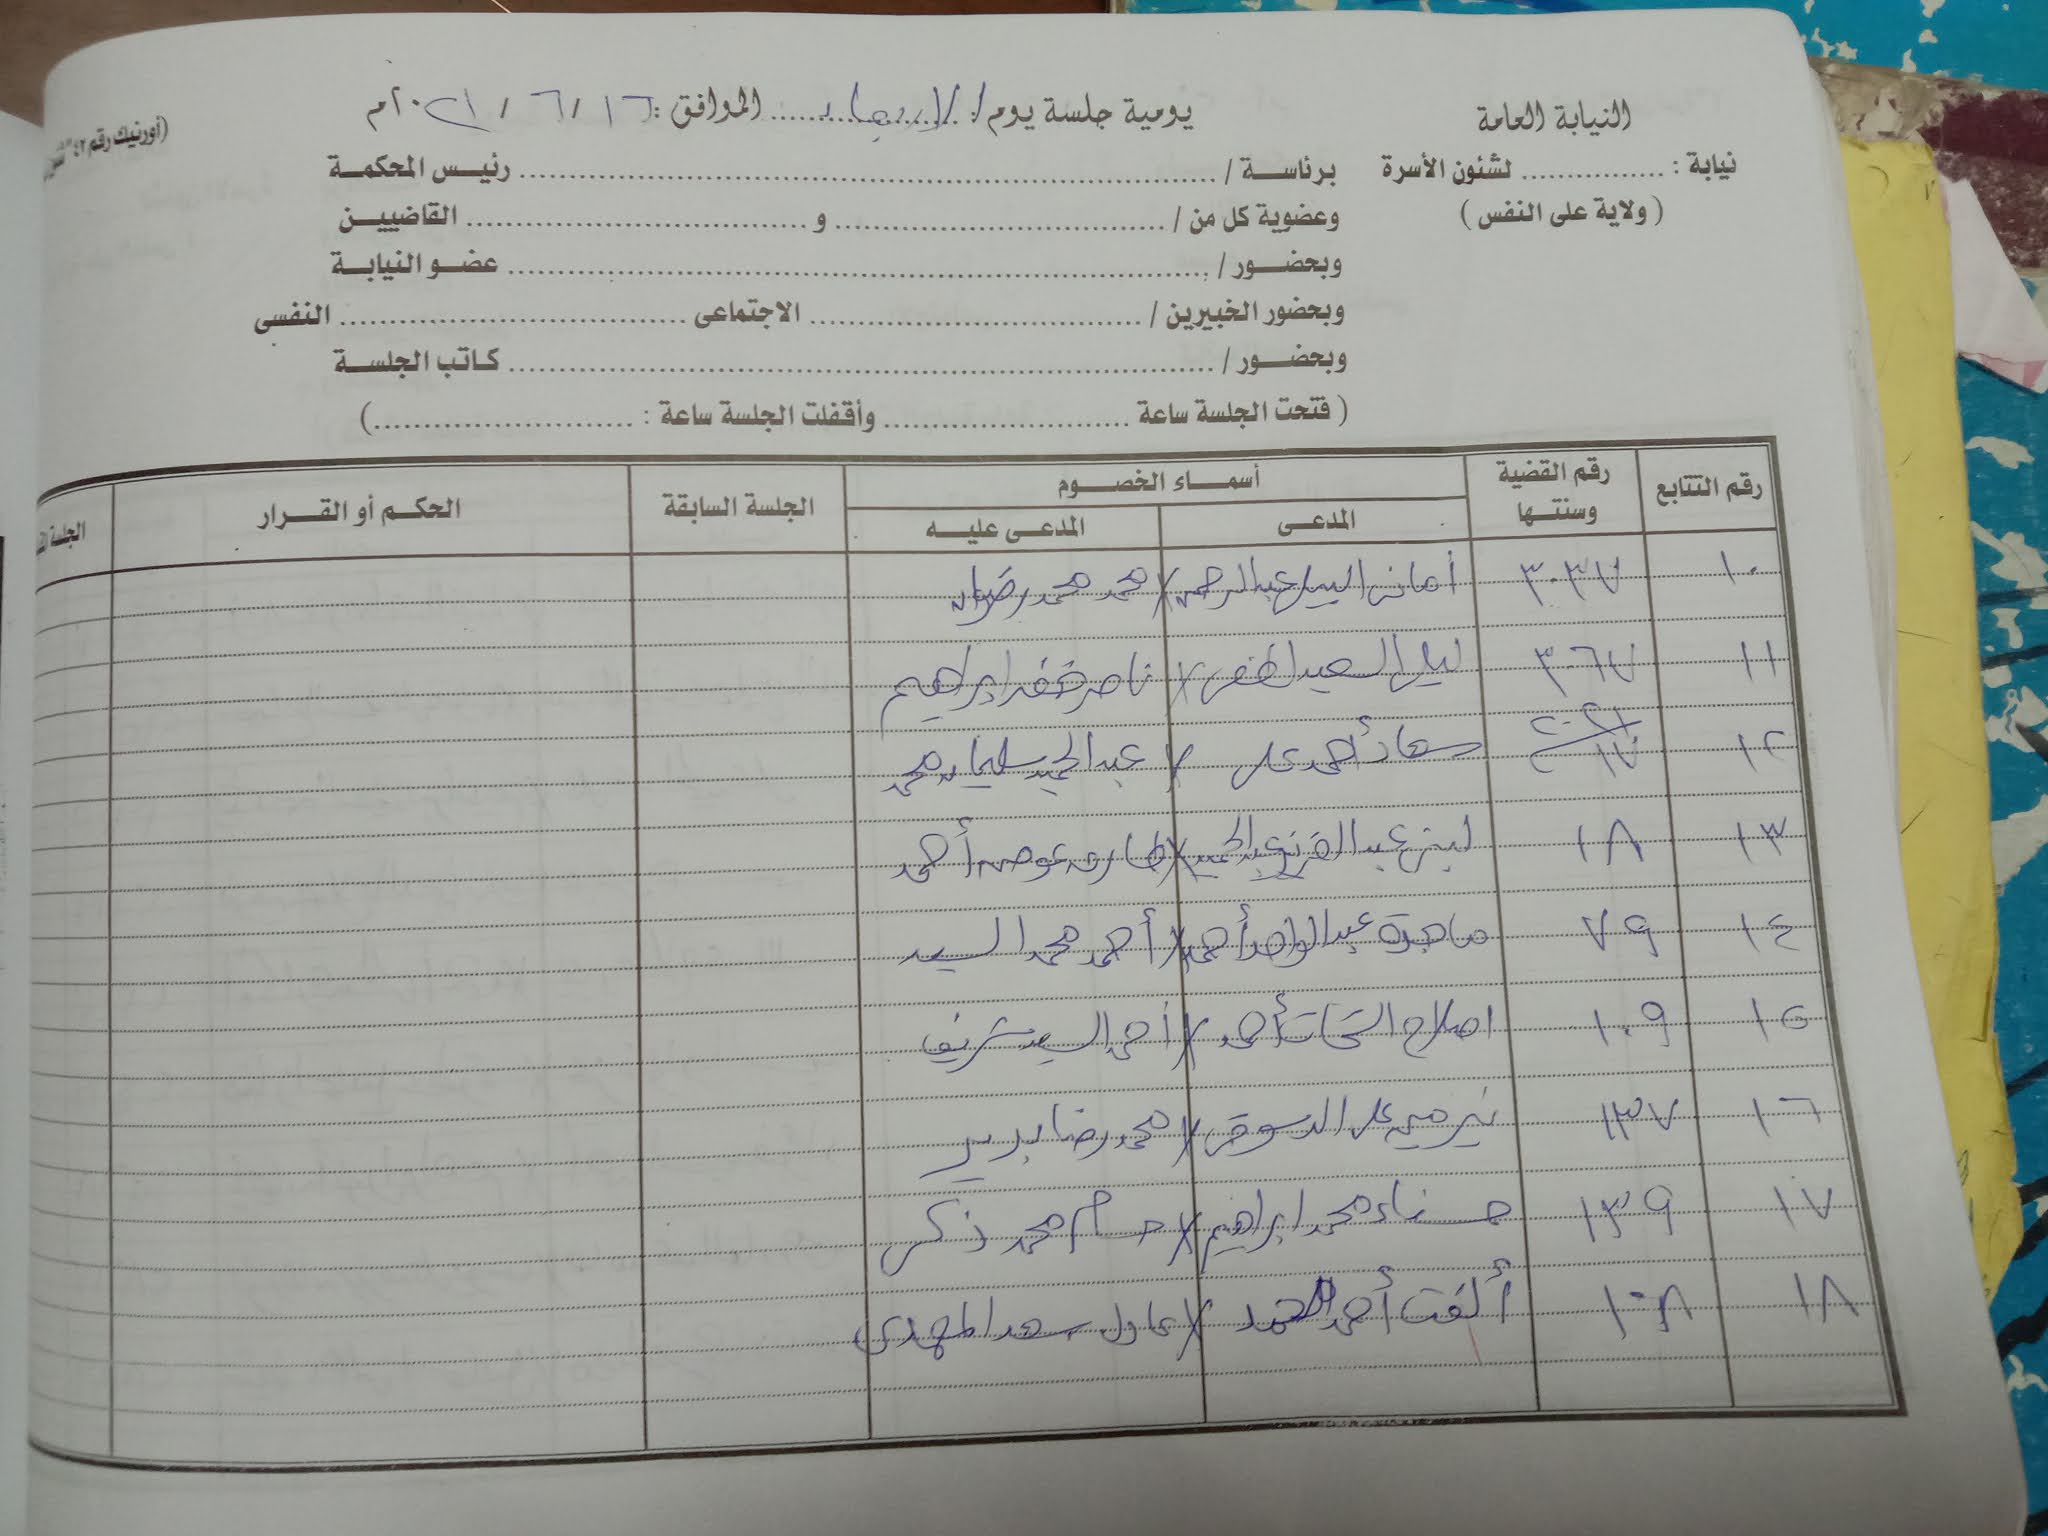 النيابة العامة
نيابة : ................ لشئون الأسرة
( ولاية على النفس )
يومية جلسة يوم / الاربعاء الموافق : ١٦ / ٦ / ٢٠٢١م
(أورنيك رقم ٤٢
برئاسة / ................ رئيس المحكمة
وعضوية كل من / ................ و ................ القاضيين
وبحضور / ................ عضو النيابة
وبحضور الخبيرين / ................ الاجتماعى ................ النفسى
وبحضور / ................ كاتب الجلسة
( فتحت الجلسة ساعة ................ وأقفلت الجلسة ساعة : ................ )
رقم التتابع رقم القضية وسنتها أسماء الخصوم الجلسة السابقة الحكم أو القرار الجلسة
المدعى المدعى عليه
١٠ ٣٠٣٧ أمانى السيد عبدالرحمن / محمد محمد رضوان
١١ ٣٠٦٧ ليلى السعيد / ناصر إبراهيم
٢٠٢١
١٢ ١٧ سعاد أحمد على / عبدالحميد سليمان محمد
١٣ ١٨ لبنى عبد / طارق عوض أحمد
١٤ ٧٩ ماجدة عبدالواحد أحمد / أحمد محمد السيد
١٥ ١٠٩ اصلاح الشحات أحمد / أحمد السيد شريف
١٦ ١٣٧ نيرمين على الدسوقى / محمد رضا بدير
١٧ ١٣٩ حسناء محمد ابراهيم / حسام محمد زكى
١٨ ١٠٨ ألفت أحمد / عادل سعد المهدى